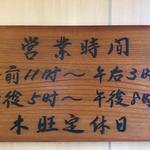 営業時間
午前11時〜午后3時
午後5時〜午後8時
木曜定休日